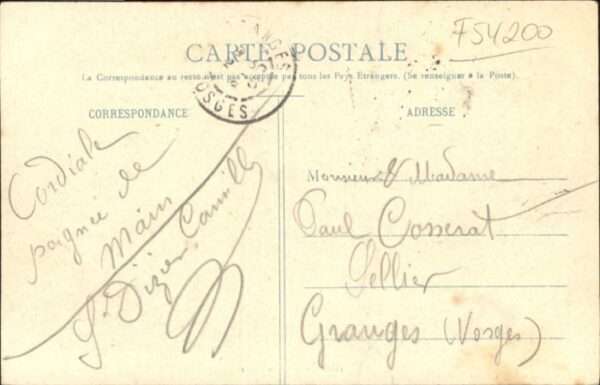 F54200
CARTE POSTALE
La Correspondance au recto n'est pas acceptée par tous les Pays Etrangers. (Se renseigner à la Poste).
CORRESPONDANCE
Cordiale
poignée de
main
St Dizier Camille
ADRESSE
Monsieur & Madame
Paul Cosserat
Sellier
Granges (Vosges)
GRANGES
VOSGES